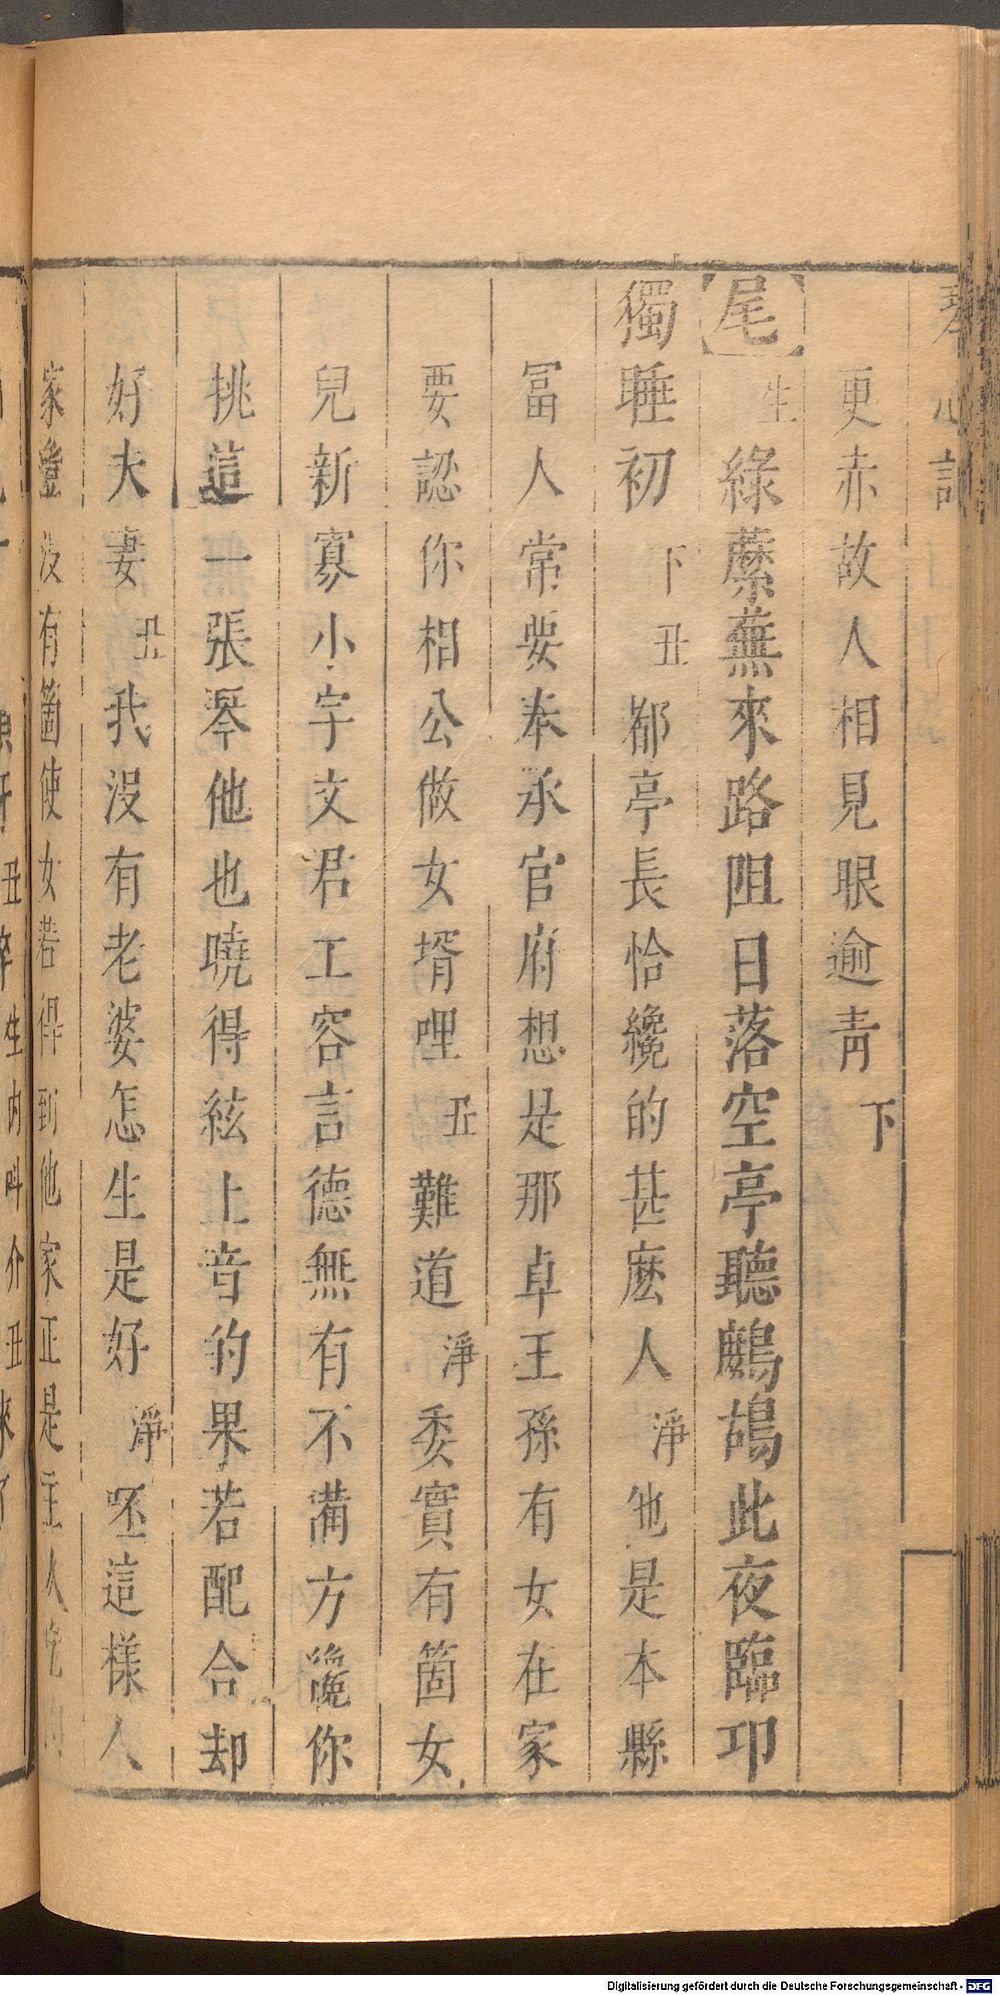 琴心記
更赤故人相見眼逾靑 下
【尾】生 綠蘼蕪來路阻日落空亭聽鷓鴣此夜臨卭
獨睡初 下 丑 都亭長恰纔的甚麽人 淨 他是本縣
冨人常要奉承官府想是那卓王孫有女在家
要認你相公做女壻哩 丑 難道 淨 委實有箇女
兒新寡小字文君工容言德無有不備方纔你
挑這一張琴他也曉得絃上音的果若配合却
好夫妻 丑 我沒有老婆怎生是好 淨 呸這樣人
家豈沒有箇使女若得到他家正是主人吃
丑 生內叫介丑來了
Digitalisierung gefördert durch die Deutsche Forschungsgemeinschaft - DFG